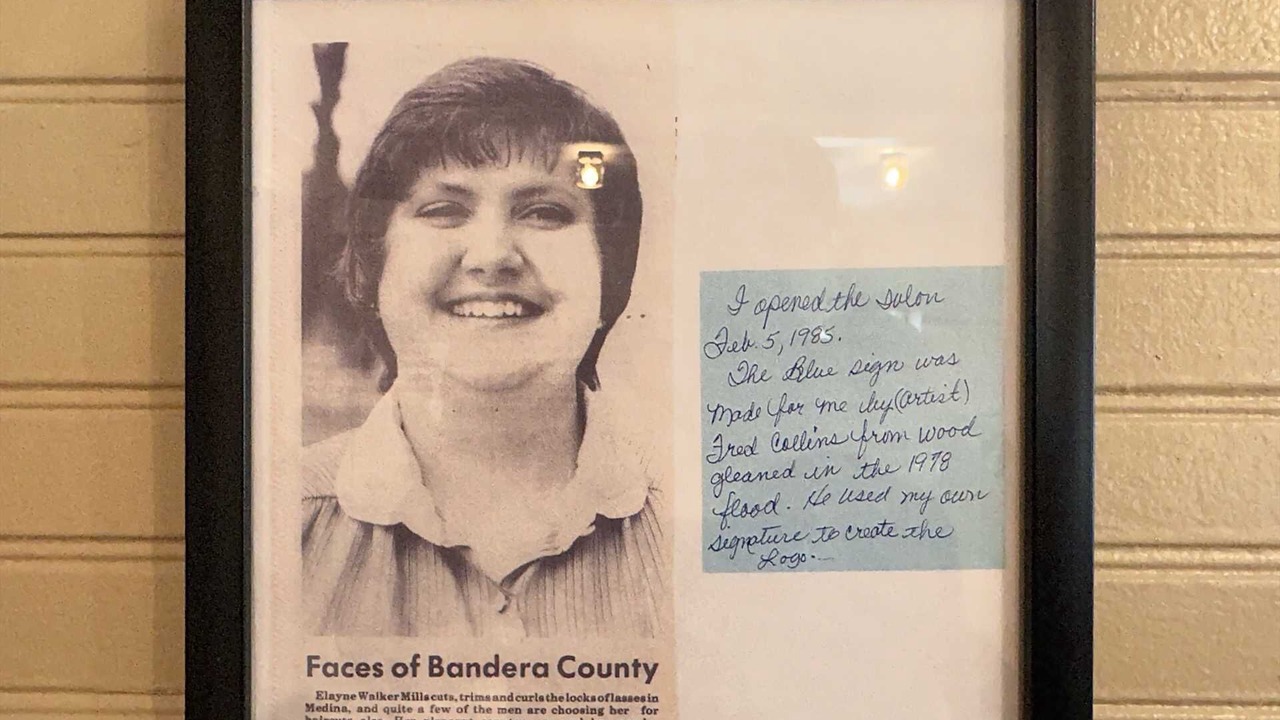 Faces of Bandera County
Elayne Walker Mills cuts, trims and curls the locks of lasses in
Medina, and quite a few of the men are choosing her for
I opened the salon
Feb. 5, 1985.
The Blue sign was
Made for me by (artist)
Fred Collins from wood
gleaned in the 1978
flood. He used my own
signature to create the
Logo.